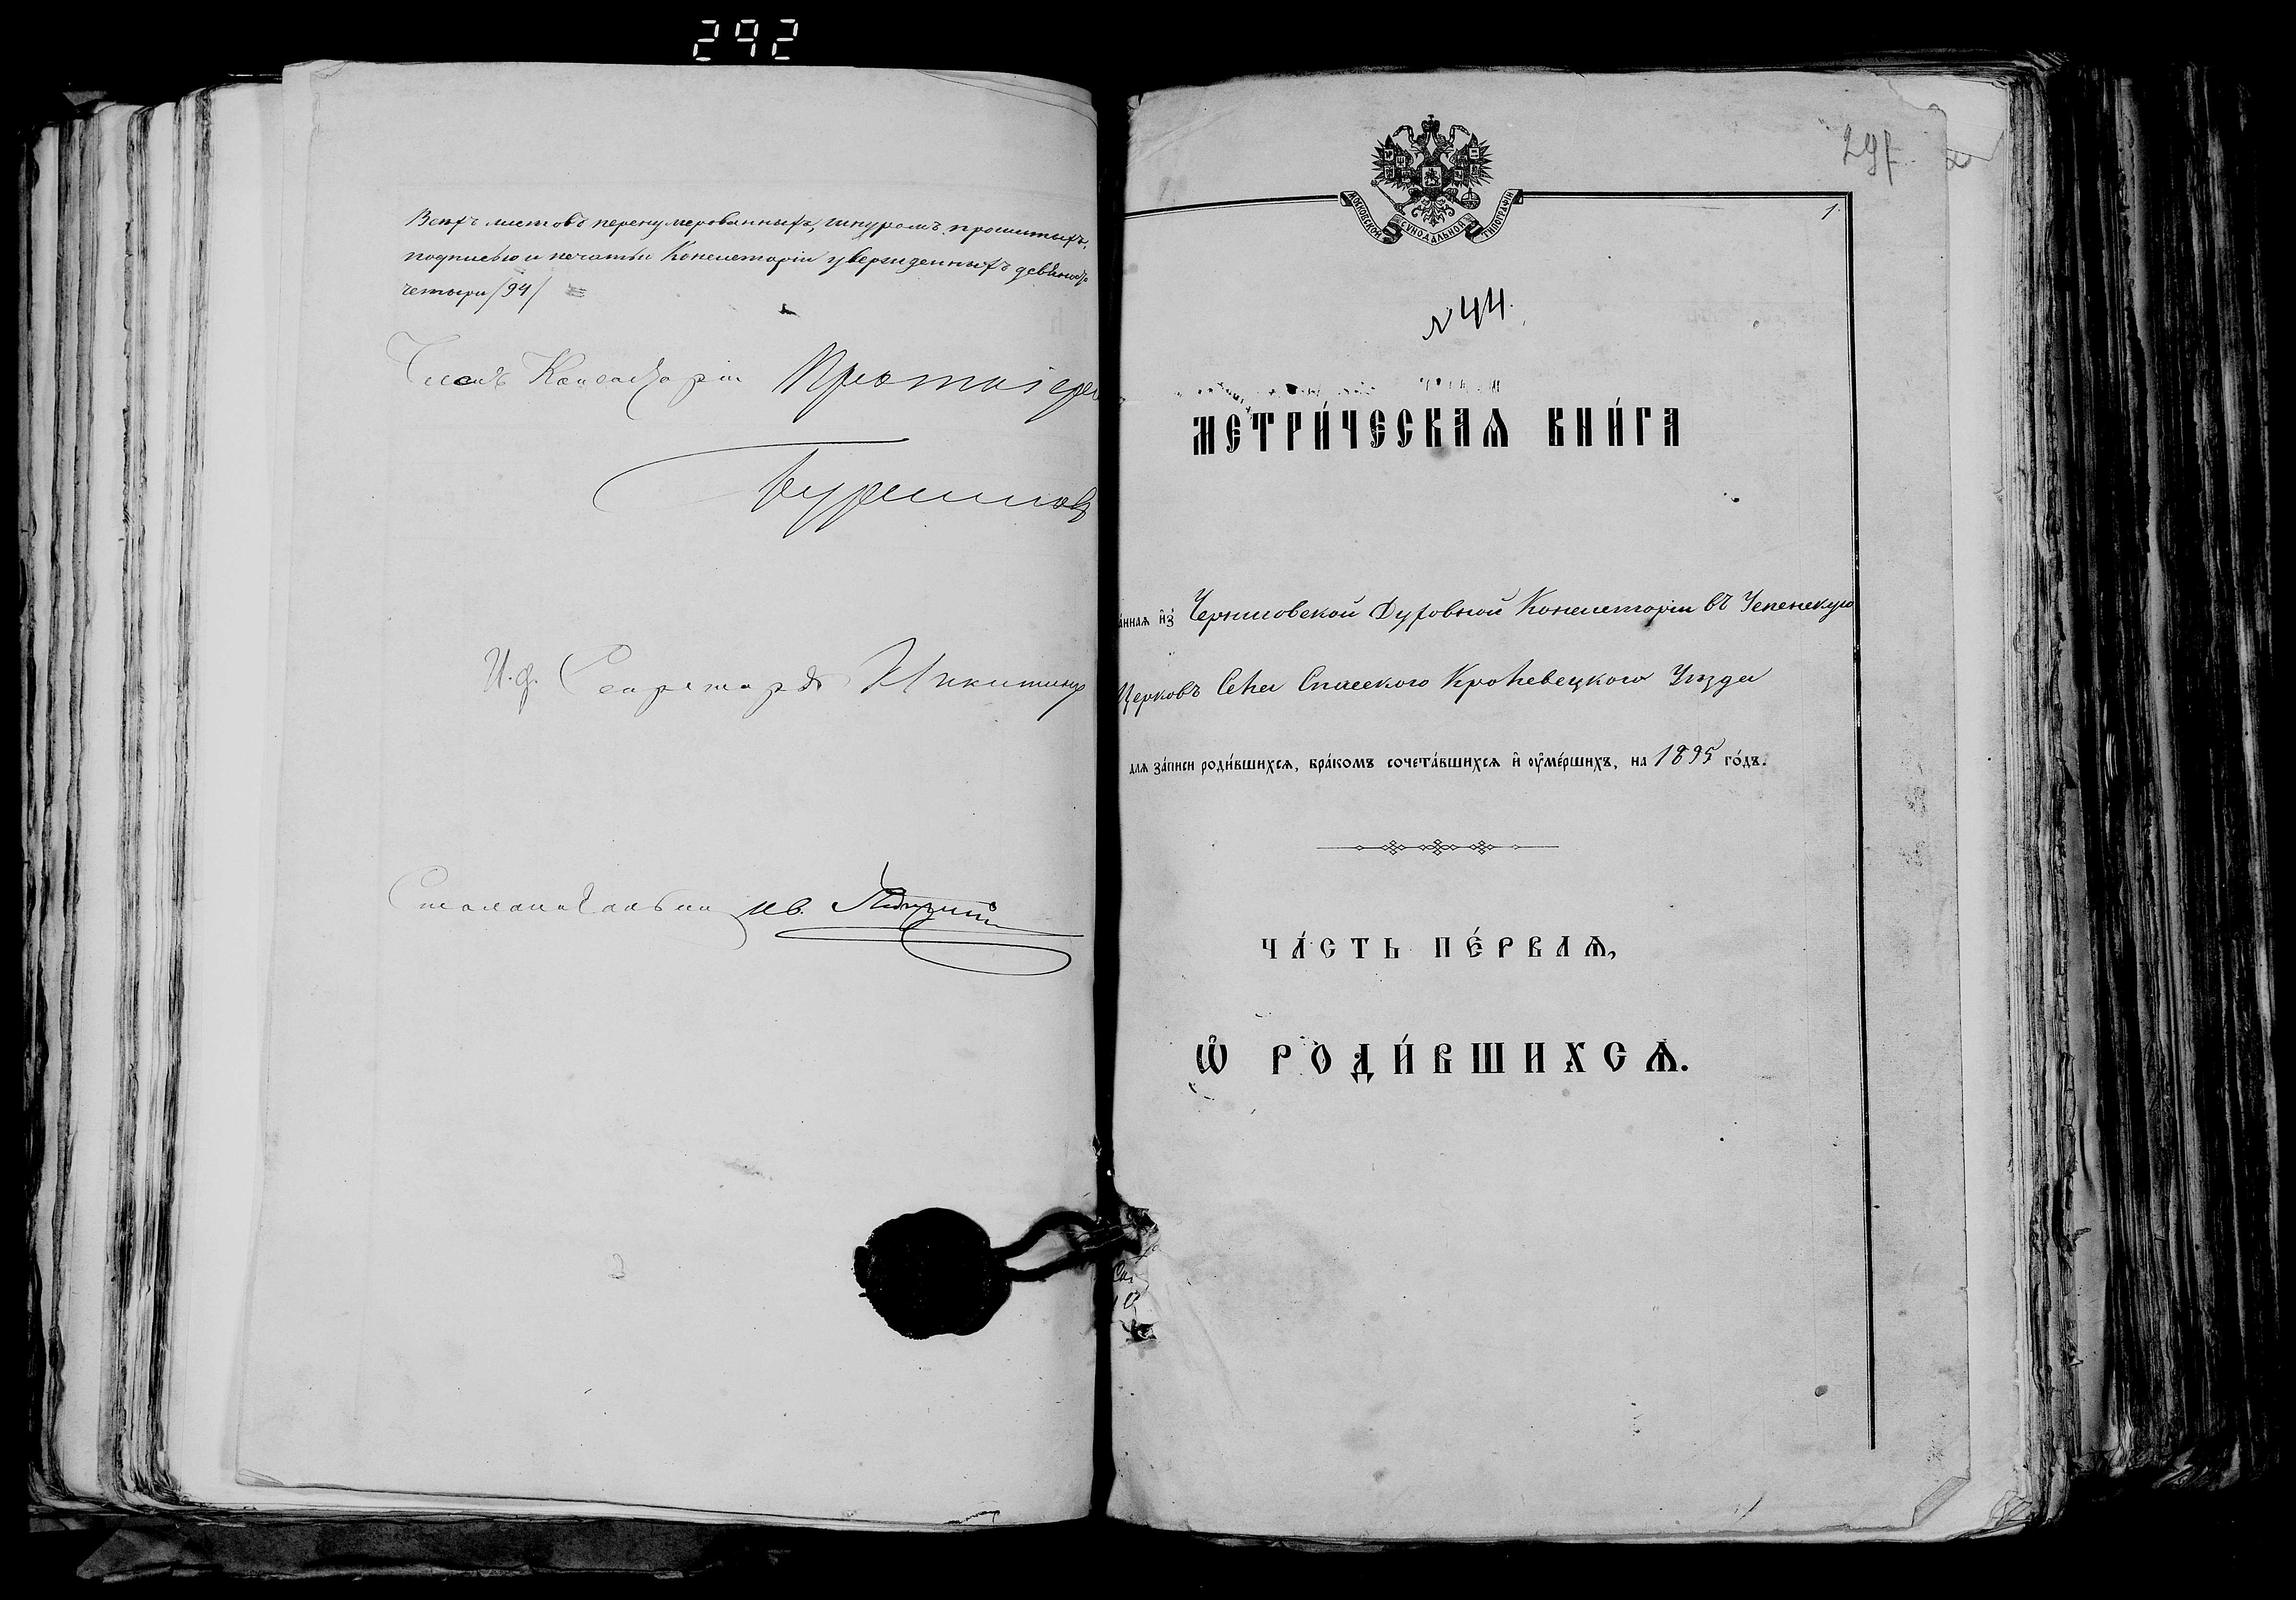 292
Всѣхъ листовъ перенумерованныхъ, шнуромъ прошитыхъ,
подписью и печатью Консисторіи утвержденныхъ девяносто
четыри /94/
Членъ Консисторіи Протоіерей
И. ф. Секретаря Никитинъ
Столоначальникъ Ив.
1.
МОСКОВСКОЙ СѴНОДАЛЬНОЙ ТИПОГРАФІИ
№ 44.
МЕТРИ́ЧЕСКАѦ КНИ́ГА
а́ннаѧ и҆з̾ Черниговской Духовной Консисторіи въ Успенскую
Церковь Села Спасского Кролевецкого Уѣзда
длѧ за́писи роди́вшихсѧ, бра́комъ сочета́вшихсѧ и҆ ᲂу҆ме́ршихъ, на 1895 го́дъ.
ЧА́СТЬ ПЕ́РВАѦ,
Ѡ҆ РОДИ́ВШИХСѦ.